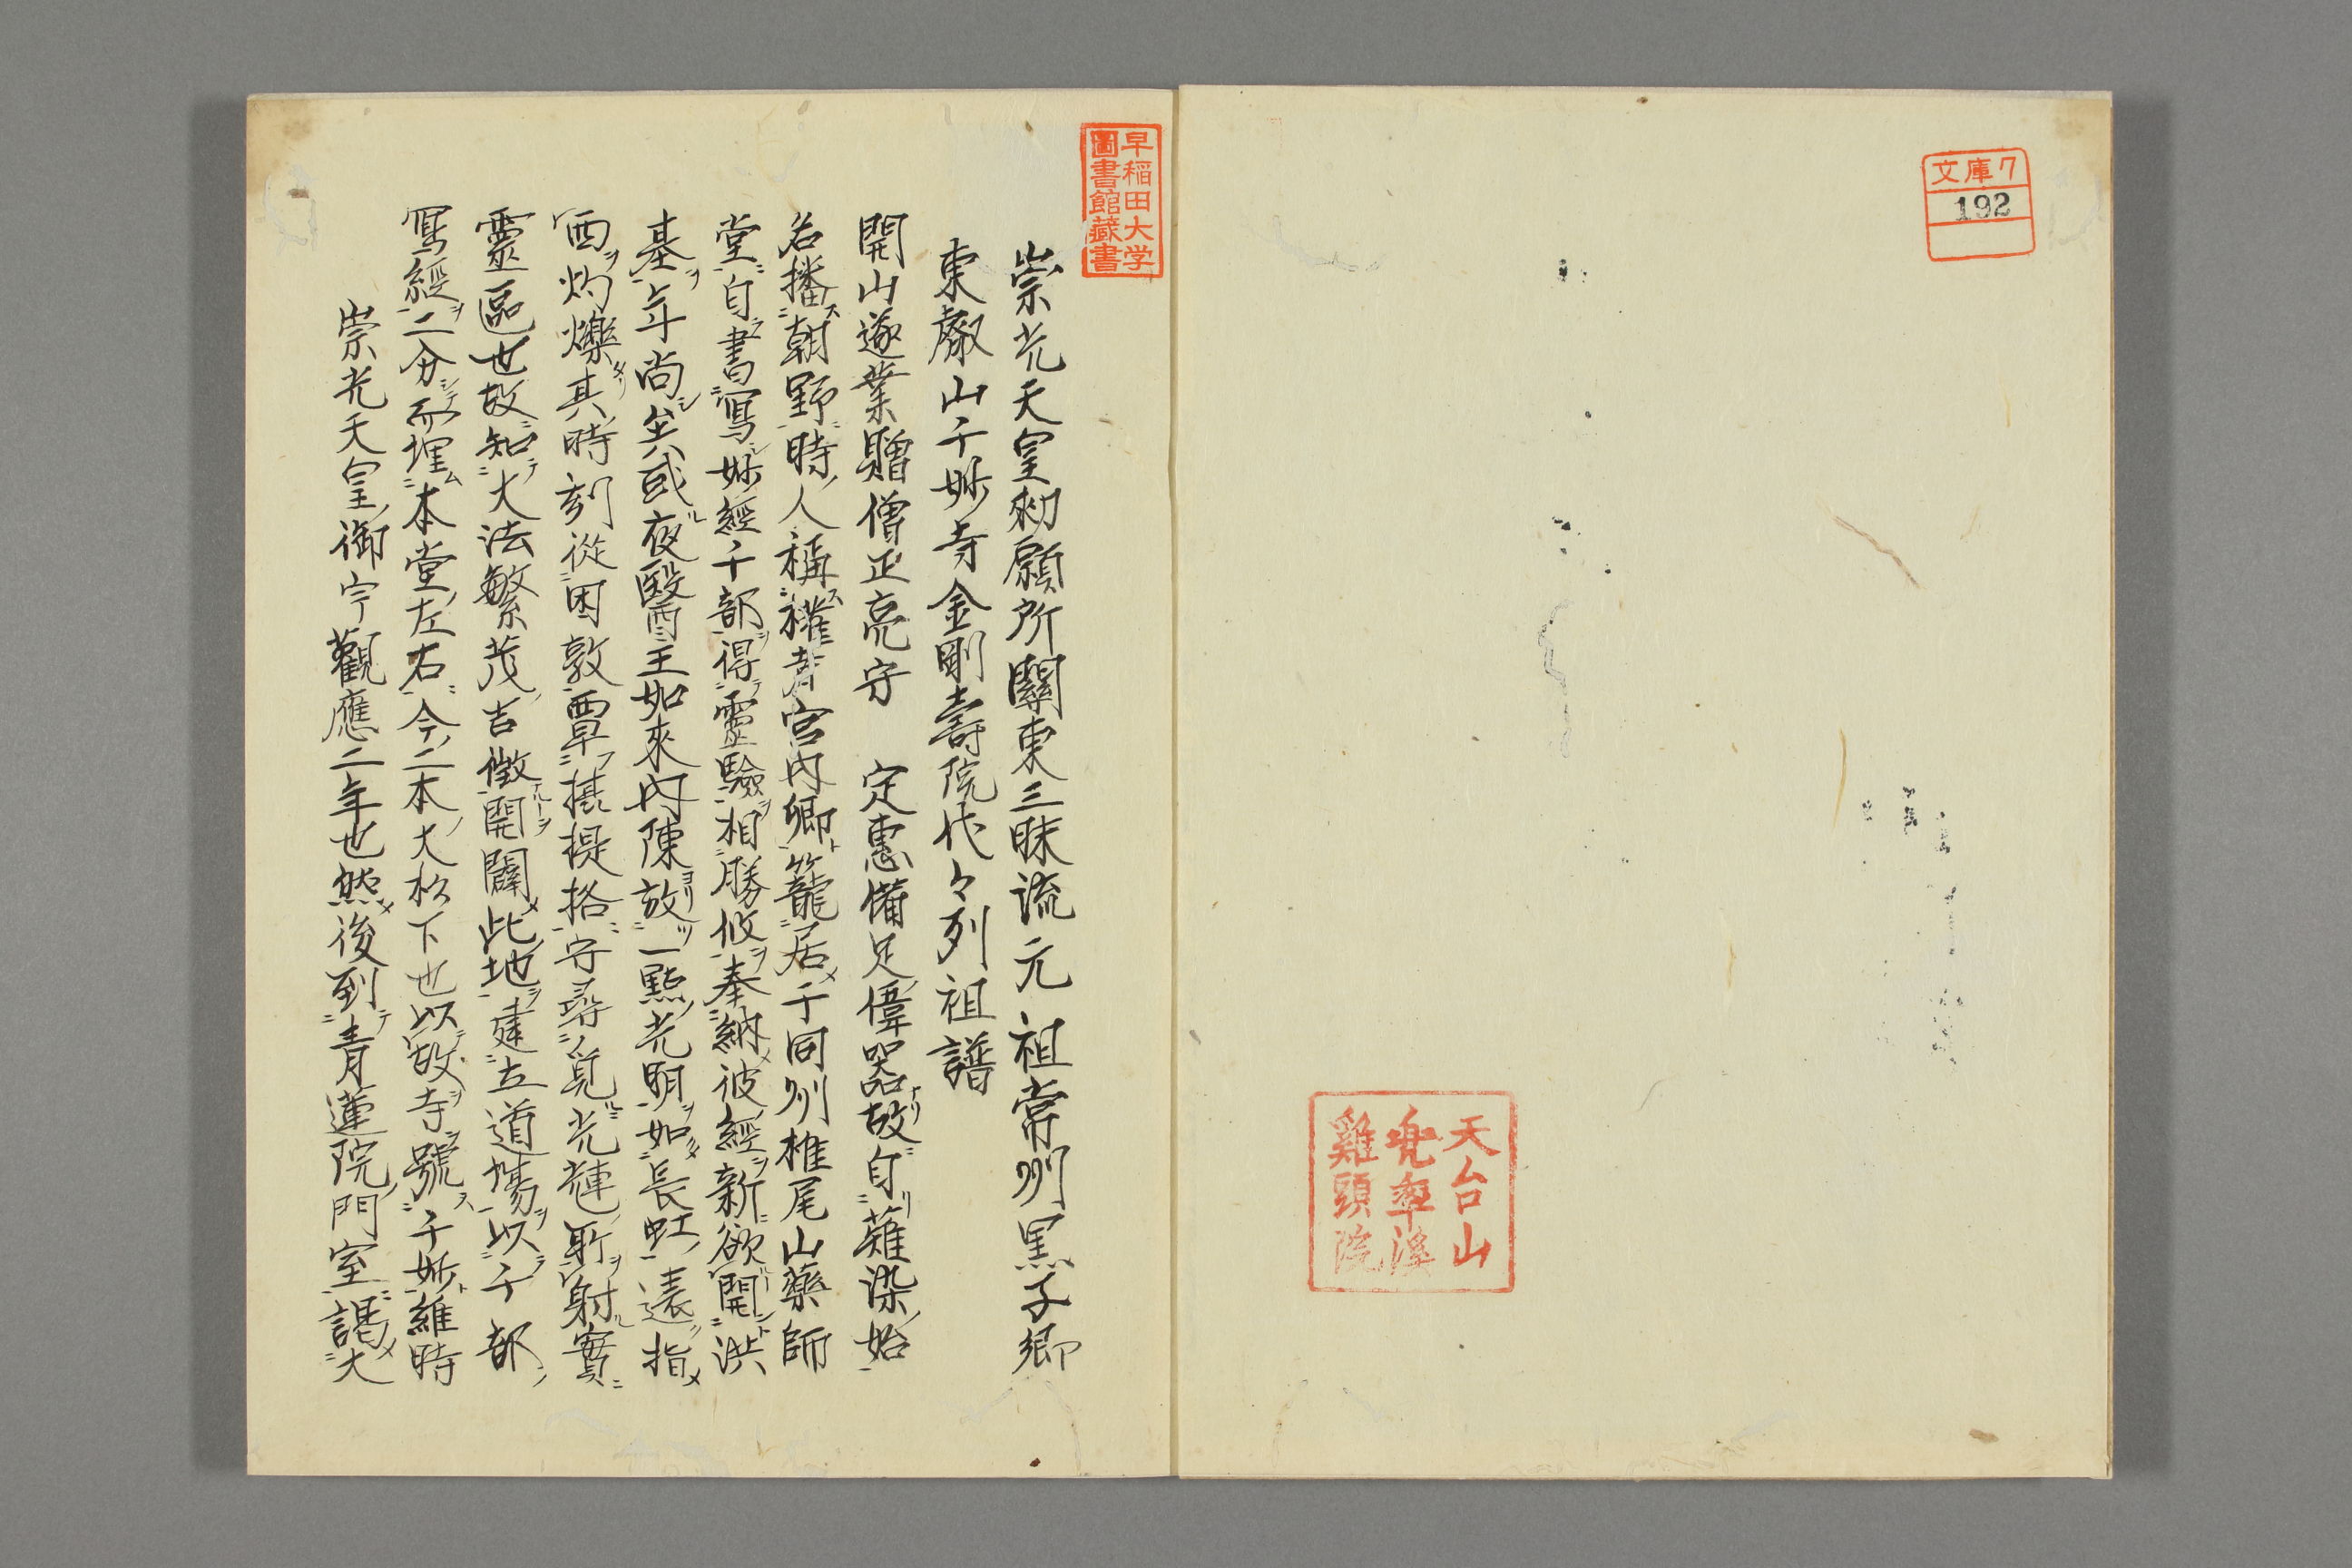 文庫7
192
天台山
兜率溪
雞頭院
早稲田大学
圖書館藏書
崇光天皇勅願所關東三昧流元祖常州黒子郷
東叡山千妙寺金剛壽院代々列祖譜
開山遂業贈僧正亮守 定惠備足偉器故自薙染始
名播朝野時人稱權者宮内卿籠居于同州椎尾山藥師
堂自書寫妙經千部得靈驗相勝攸奉納彼經新欲開洪
基年尚矣或夜醫王如來内陳放一點光明如長虹遠指
西灼爍其時刻從困敦覃攝提格守尋覓光輝所射實
靈區也故知大法繁茂吉徴開闢此地建立道場以千部
寫經二分而埋本堂左右今二本大松下也以故寺號千妙維時
崇光天皇御宇觀應二年也然後到青蓮院門室謁大